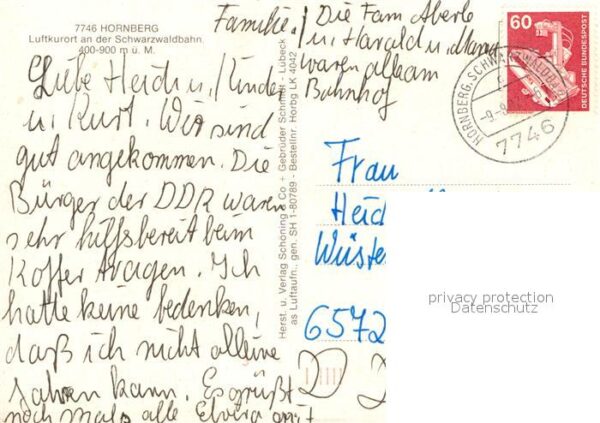 7746 HORNBERG
Luftkurort an der Schwarzwaldbahn.
400-900 m ü. M.
Familie!
Die Fam Aberle
u. Harald u.
waren all am
Bahnhof
Liebe Heidi u. Kinder
u. Kurt. Wir sind
gut angekommen. Die
Bürger der DDR waren
sehr hilfsbereit beim
Koffer tragen. Ich
hatte keine bedenken,
daß ich nicht alleine
fahren kann. Es grüßt
noch mals alle Elvira
Herst. u. Verlag Schöning & Co + Gebrüder Schmidt - Lübeck
as Luftaufn., gen. SH 1-80789 - Bestellnr. Horbg LK 4042
60
DEUTSCHE BUNDESPOST
HORNBERG, SCHWARZWALDBAHN
7746
Frau
Heid
Wüste
6572
privacy protection
Datenschutz